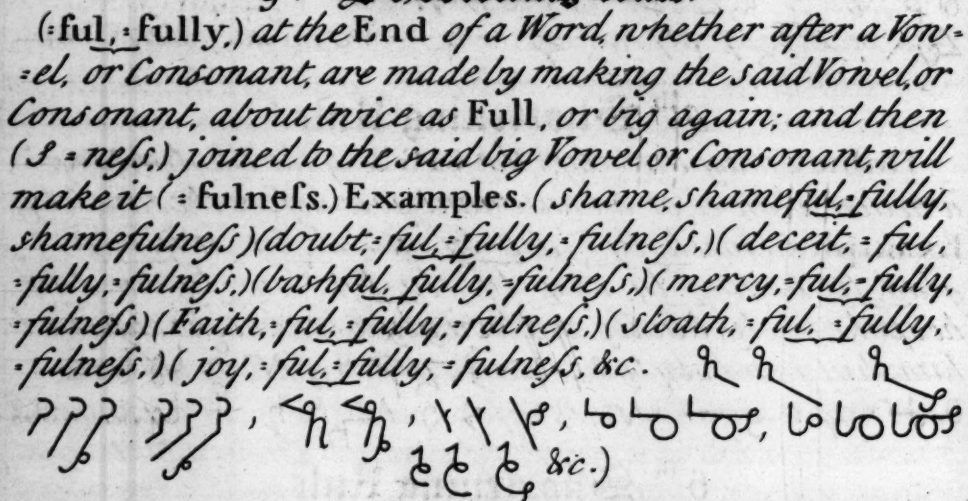 (=ful, =fully,) at the End of a Word, whether after a Vow=
=el, or Consonant, are made by making the said Vowel, or
Consonant, about twice as Full, or big again; and then
( = neſs,) joined to the said big Vowel or Consonant, will
make it (= fulneſs.) Examples. ( shame, shameful, =fully,
shamefulneſs )(doubt, =ful, =fully, = fulneſs,)( deceit, = ful,
=fully, =fulneſs,)(bashful, fully, =fulneſs,)( mercy, =ful, =fully,
=fulneſs)(Faith, =ful, =fully, =fulneſs,)(sloath, =ful, =fully,
=fulneſs,)( joy, =ful, =fully, = fulneſs, &c.
&c.)